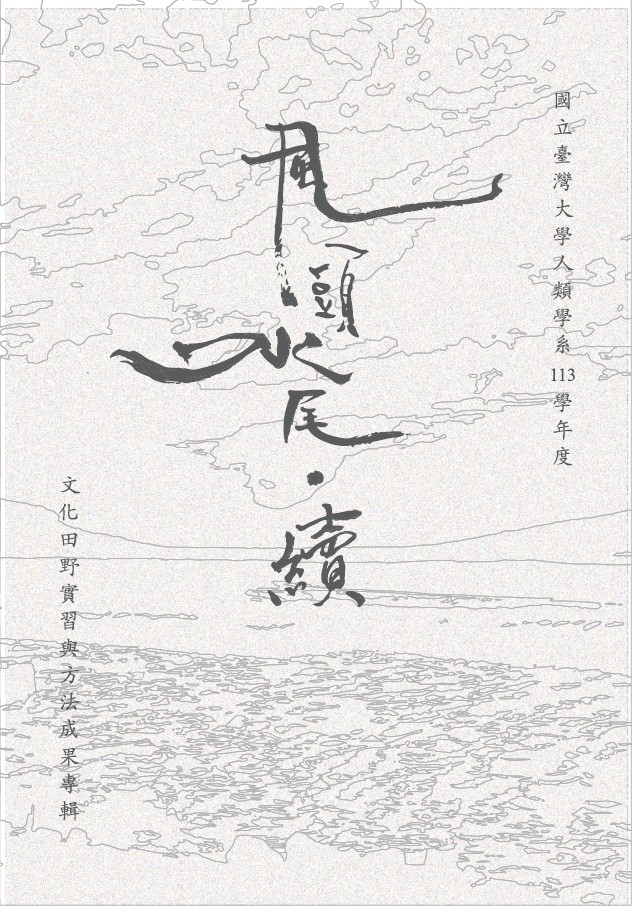 國立臺灣大學人類學系113學年度
風頭水尾・續
文化田野實習與方法成果專輯